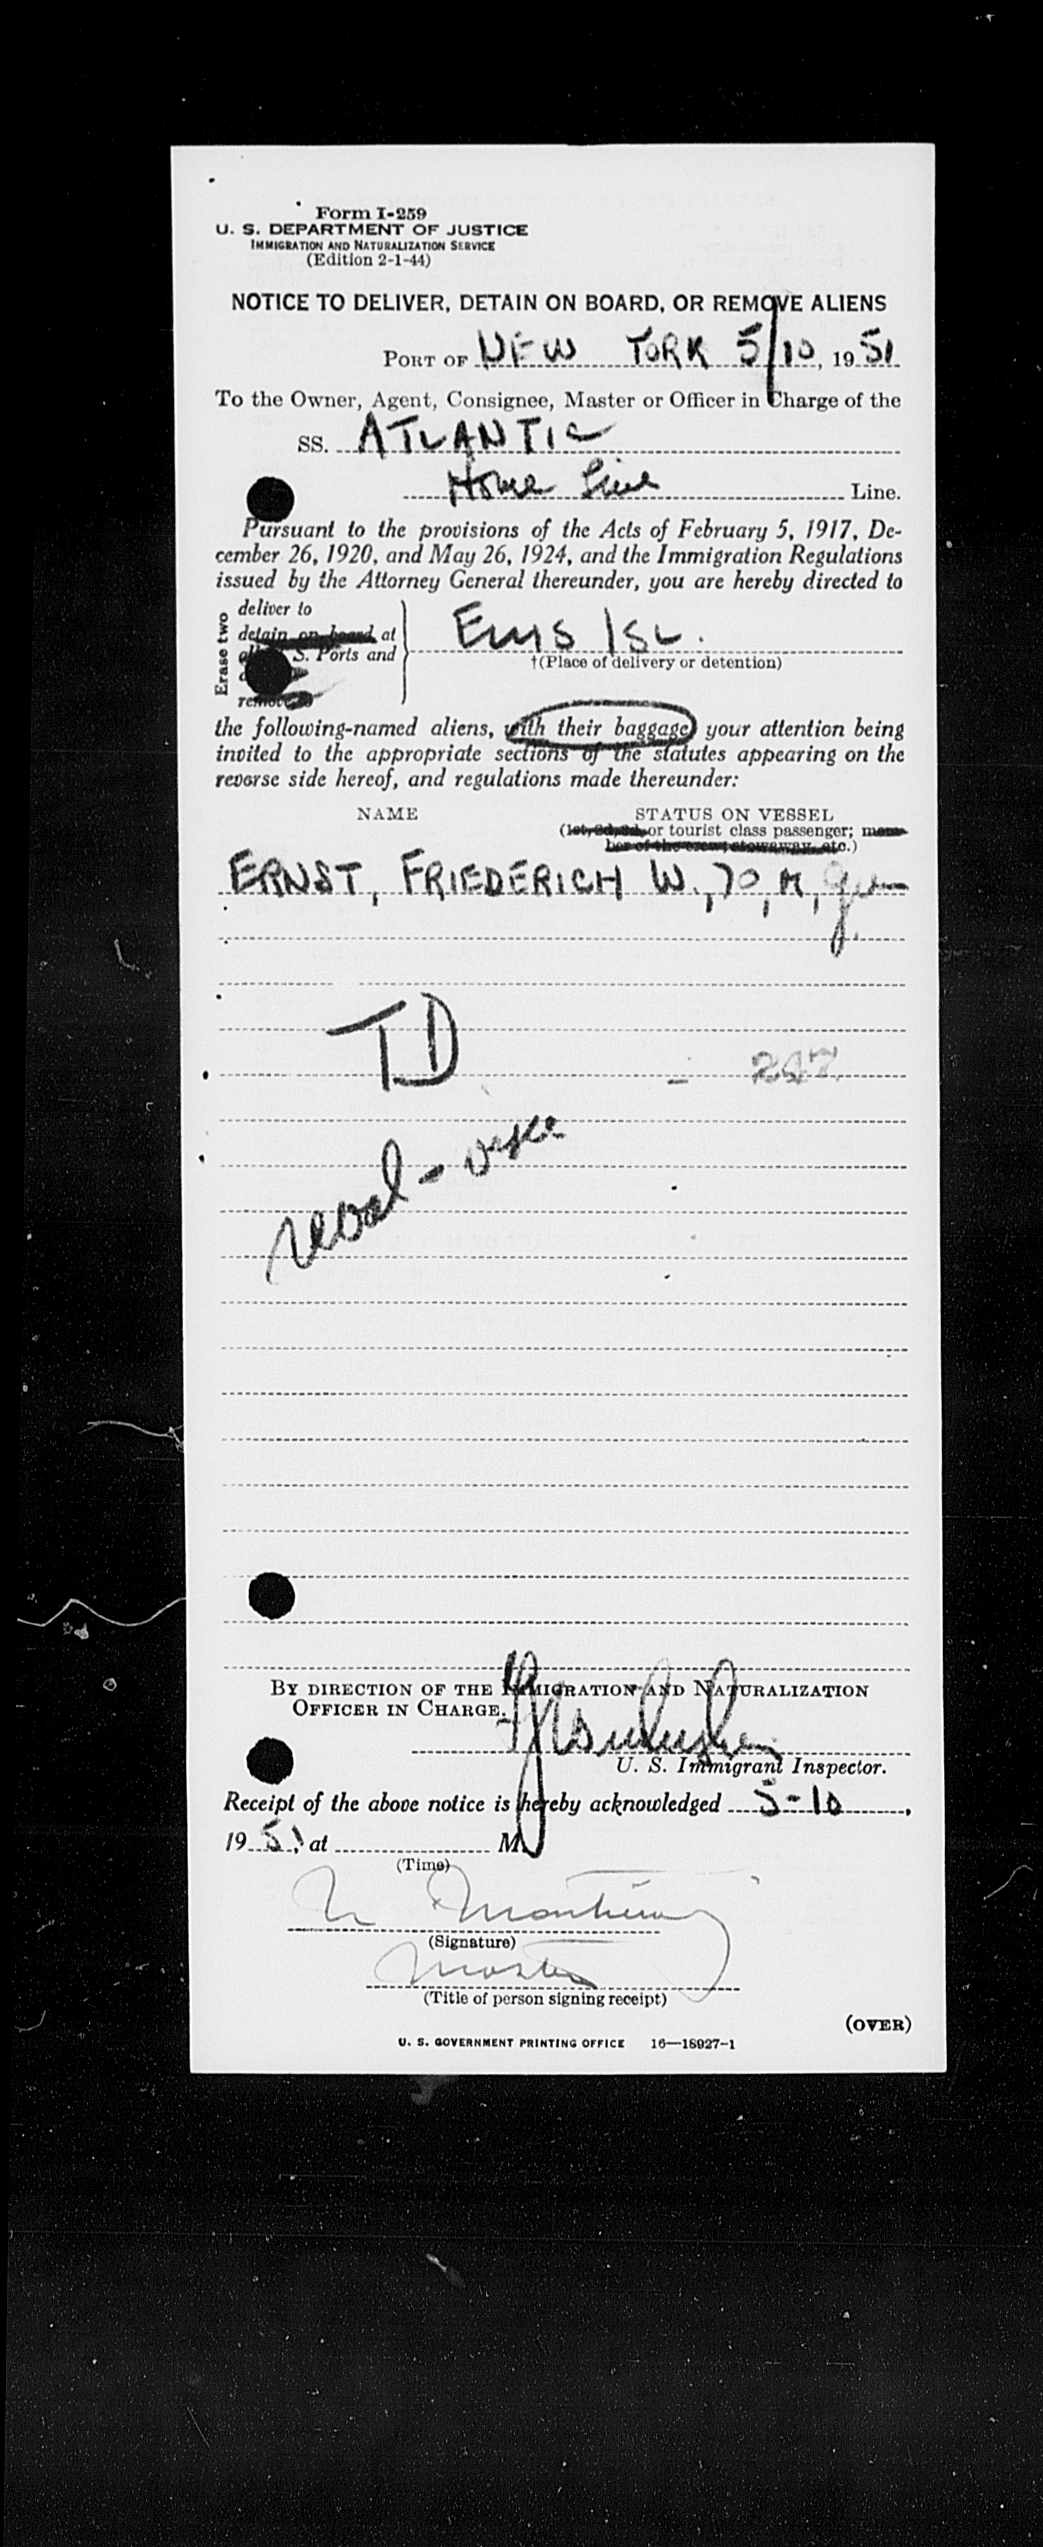 Form I-259
U. S. DEPARTMENT OF JUSTICE
IMMIGRATION AND NATURALIZATION SERVICE
(Edition 2-1-44)
NOTICE TO DELIVER, DETAIN ON BOARD, OR REMOVE ALIENS
PORT OF NEW YORK 5/10, 1951
To the Owner, Agent, Consignee, Master or Officer in Charge of the
SS. ATLANTIC
Home Line Line.
Pursuant to the provisions of the Acts of February 5, 1917, De-
cember 26, 1920, and May 26, 1924, and the Immigration Regulations
issued by the Attorney General thereunder, you are hereby directed to
Erase two
deliver to
detain on board at
S. Ports and
remove to
Ellis Isl.
†(Place of delivery or detention)
the following-named aliens, with their baggage, your attention being
invited to the appropriate sections of the statutes appearing on the
reverse side hereof, and regulations made thereunder:
NAME STATUS ON VESSEL
(1st, 2d, 3d, or tourist class passenger; mem-
ber of the crew; stowaway, etc.)
ERNST, FRIEDERICH W., 70, M, Ger
TD
247
BY DIRECTION OF THE IMMIGRATION AND NATURALIZATION
OFFICER IN CHARGE.
U. S. Immigrant Inspector.
Receipt of the above notice is hereby acknowledged 5-10,
1951, at M.
(Time)
(Signature)
Master
(Title of person signing receipt)
(OVER)
U. S. GOVERNMENT PRINTING OFFICE 16—18927-1